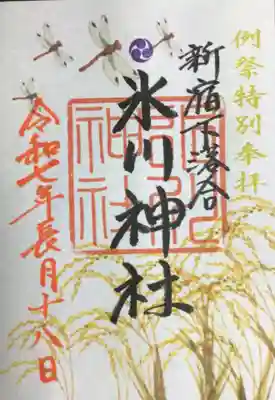 例祭特別奉拝
新宿下落合
氷川神社
令和七年長月十八日